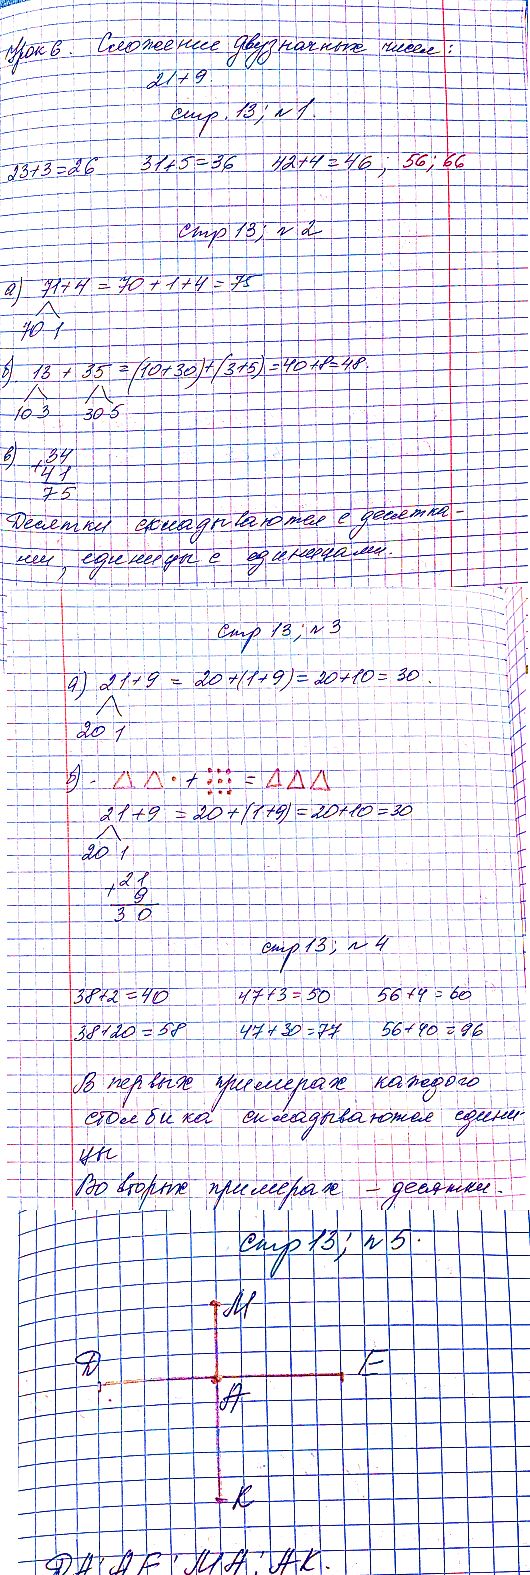 Урок 6. Сложение двузначных чисел:
21+9.
стр. 13; №1.
23+3=26 31+5=36 42+4=46; 56; 66
стр 13; №2
а) 71+4 = 70+1+4=75
70 1
б) 13 + 35 = (10+30)+(3+5)=40+8=48.
10 3 30 5
в) 34
+ 41
75
Десятки складываются с десятка-
ми, единицы с единицами.
стр 13; №3
а) 21+9 = 20+(1+9)=20+10=30.
20 1
б) + =
21+9 = 20+(1+9)=20+10=30
20 1
21
+ 9
30
стр 13; №4
38+2=40 47+3=50 56+4=60
38+20=58 47+30=77 56+40=96
В первых примерах каждого
столбика складываются едини-
цы
Во вторых примерах – десятки.
стр 13; №5.
М
Д Е
А
К
ДА; АЕ; МА; АК.